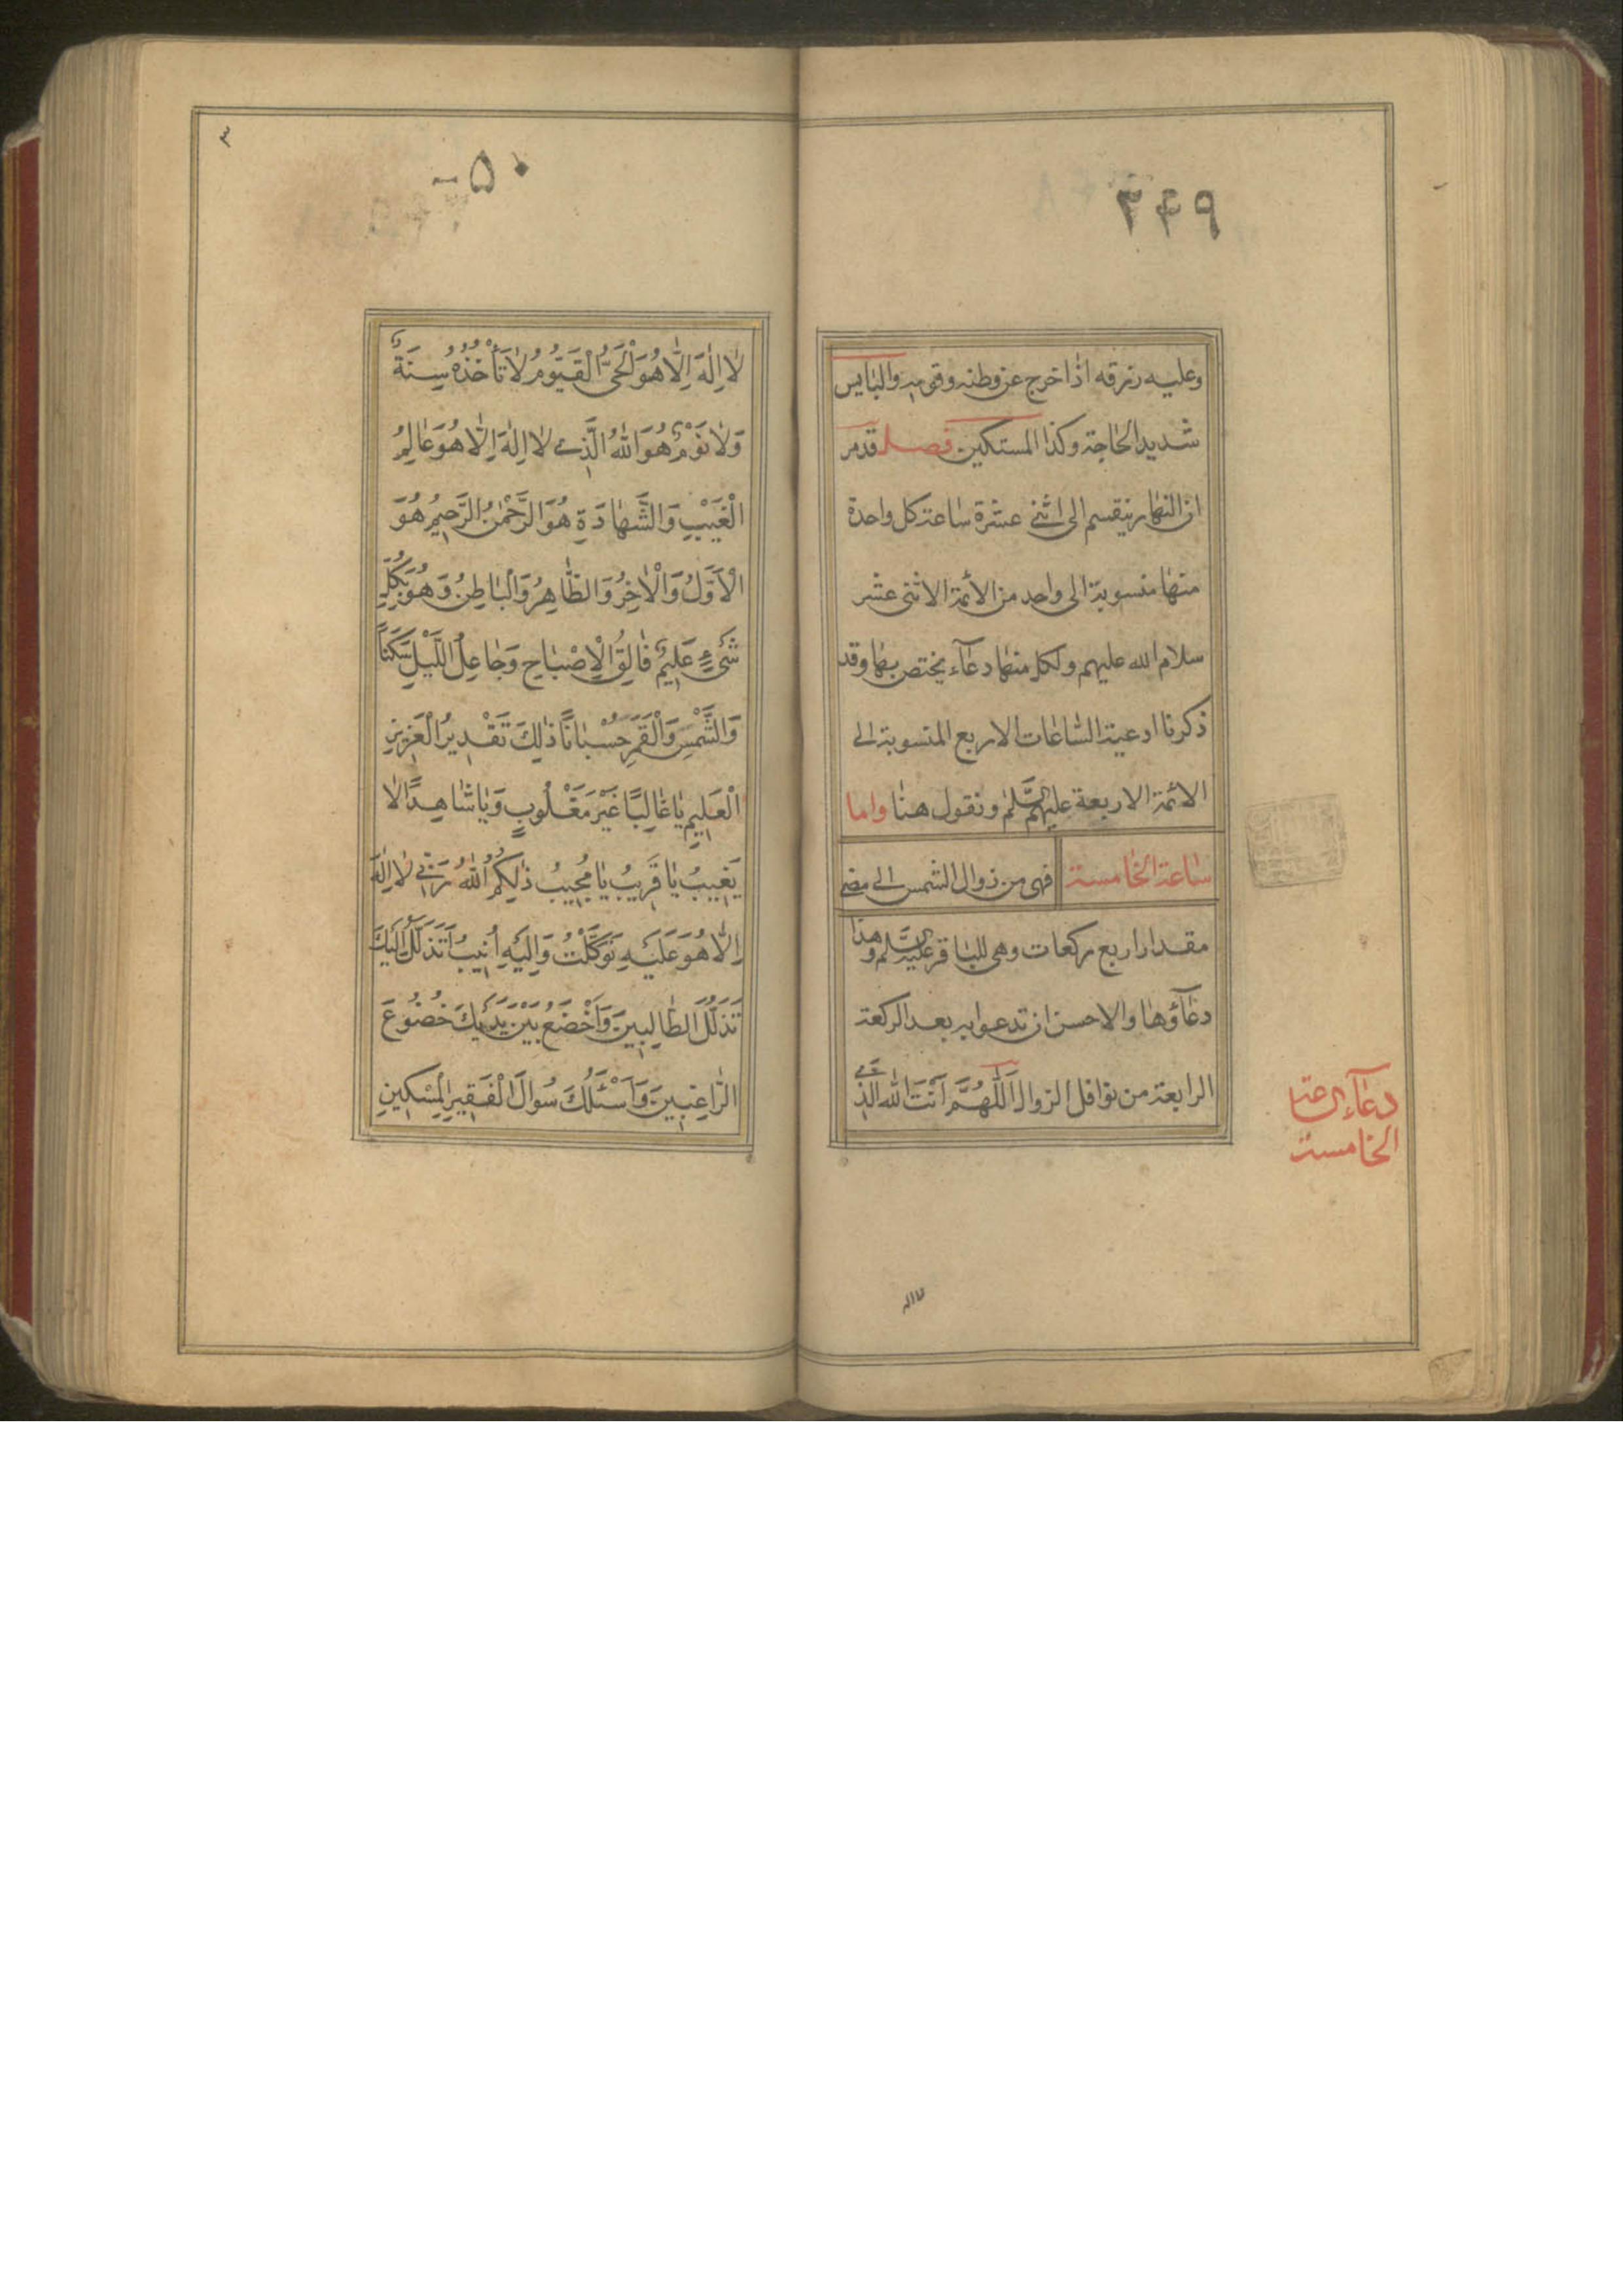 ۲۴۹
وعليه رزقه اذا خرج عن وطنه وقوته والبايس
شديد الحاجة وكذا المستكين فصل قد مر
ان النهار ينقسم الى اثنى عشرة ساعة كل واحدة
منها منسوبة الى واحد من الأئمة الاثنى عشر
سلام الله عليهم ولكل منها دعاء يختص بها وقد
ذكرنا ادعية الساعات الاربع المنسوبة الى
الائمة الاربعة عليهم السلم ونقول هنا واما
ساعة الخامسة فهى من زوال الشمس الى مضى
مقدار اربع ركعات وهى للباقر عليه السلم وهذا
دعاؤها والاحسن ان تدعوا به بعد الركعة
الرابعة من نوافل الزوال اَللّٰهُمَّ اَنْتَ اللّٰهُ الَّذى
دعاء الساعة
الخامسة
لا اله
۳
۵۰-
لٰا اِلٰهَ اِلّٰا هُوَ الْحَىُّ الْقَيُّومُ لٰا تَأْخُذُهُ سِنَةٌ
وَلٰا نَوْمٌ هُوَ اللّٰهُ الَّذى لٰا اِلٰهَ اِلّٰا هُوَ عٰالِمُ
الْغَيْبِ وَالشَّهٰادَةِ هُوَ الرَّحْمٰنُ الرَّحيمُ هُوَ
الْاَوَّلُ وَالْاٰخِرُ وَالظّٰاهِرُ وَالْبٰاطِنُ وَهُوَ بِكُلِّ
شَىْءٍ عَليمٌ فٰالِقُ الْاِصْبٰاحِ وَجٰاعِلُ اللَّيْلِ سَكَناً
وَالشَّمْسَ وَالْقَمَرَ حُسْبٰاناً ذٰلِكَ تَقْديرُ الْعَزيزِ
الْعَليمِ يٰا غٰالِبًا غَيْرَ مَغْلُوبٍ وَيٰا شٰاهِدًا لٰا
يَغيبُ يٰا قَريبُ يٰا مُجيبُ ذٰلِكُمُ اللّٰهُ رَبّى لٰا اِلٰهَ
اِلّٰا هُوَ عَلَيْهِ تَوَكَّلْتُ وَاِلَيْهِ اُنيبُ اَتَذَلَّلُ اِلَيْكَ
تَذَلُّلَ الطّٰالِبينَ وَاَخْضَعُ بَيْنَ يَدَيْكَ خُضُوعَ
الرّٰاغِبينَ وَاَسْئَلُكَ سُوالَ الْفَقيرِ الْمِسْكينِ